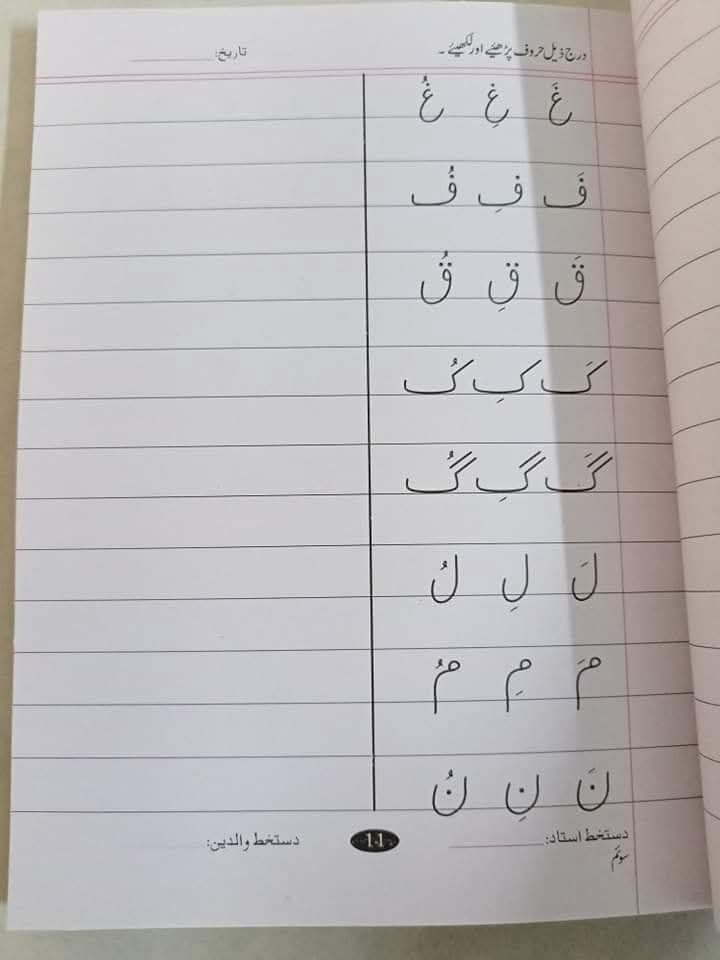 درج ذیل حروف پڑھیئے اور لکھیئے ۔ تاریخ: ____________
غَ غِ غُ
فَ فِ فُ
قَ قِ قُ
کَ کِ کُ
گَ گِ گُ
لَ لِ لُ
مَ مِ مُ
نَ نِ نُ
دستخط استاد: ____________ 11 دستخط والدین:
سوئم